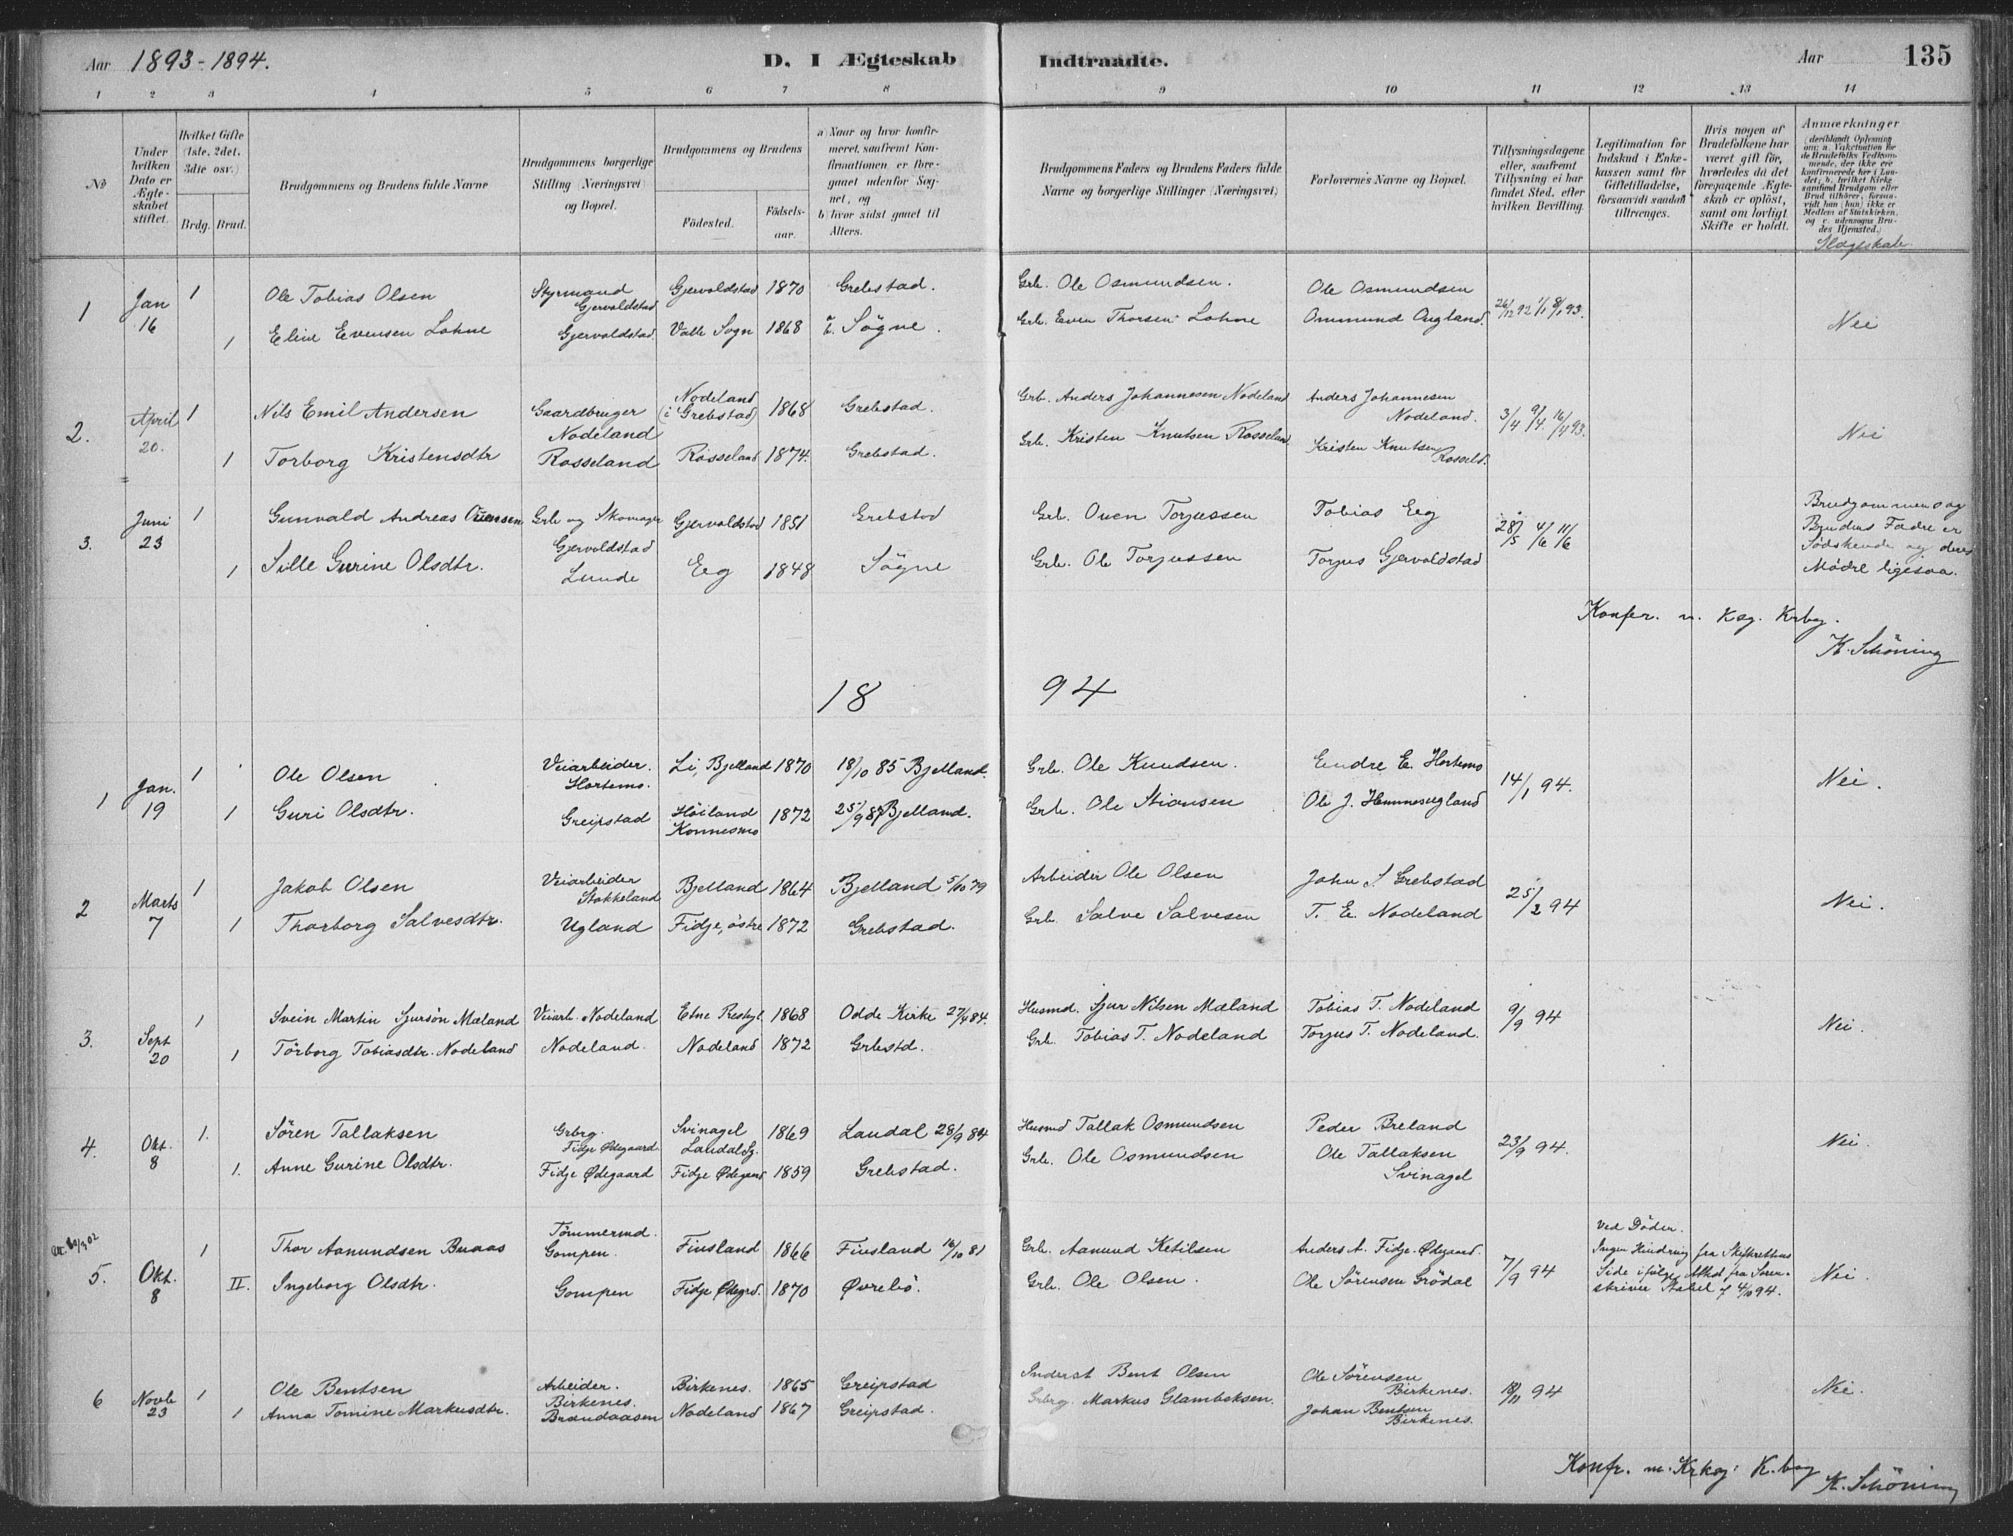 Aar 1893-1894. D. I Ægteskab Indtraadte. Aar 135
1 2 3 4 5 6 7 8 9 10 11 12 13 14
No
Under hvilken Dato er Ægteskabet stiftet.
Hvilket Gifte (1ste, 2det, 3die osv.)
Brdg. Brud.
Brudgommens og Brudens fulde Navne
Brudgommens borgerlige Stilling (Næringsvei) og Bopæl.
Brudgommens og Brudens
Fødested. Fødsels-aar.
a) Naar og hvor konfirmeret, saafremt Konfirmationen er foregaaet udenfor Sognet, og
b) hvor sidst gaaet til Alters.
Brudgommens Faders og Brudens Faders fulde Navne og borgerlige Stillinger (Næringsvei)
Forlovernes Navne og Bopæl.
Tillysningsdagene eller, saafremt Tillysning ei har fundet Sted, efter hvilken Bevilling.
Legitimation for Indskud i Enkekassen samt for Giftetilladelse, forsaavidt saadan tiltrænges.
Hvis nogen af Brudefolkene har været gift før, hvorledes da det foregaaende Ægteskab er opløst, samt om lovligt Skifte er holdt.
Anmærkninger
(deriblandt Oplysning om: a. Vakcination for de Brudefolks Vedkommende, der ikke ere konfirmerede her i Landet; b. hvilket Kirkesamfund Brudgom eller Brud tilhører, forsaavidt han (hun) ikke er Medlem af Statskirken, og c. udensogns Brudes Hjemsted.)
Slægtskab.
1 Jan 16 1 Ole Tobias Olsen Styrmand Gjervoldstad Gjervoldstad 1870 Grebstad. Grb. Ole Osmundsen. Ole Osmundsen 26/12 92 1/1 8/1 93. Nei
1 Eline Evensen Lohne Gjervoldstad Valle Sogn 1868 Søgne. Grb. Even Thorsen Lohne Ommund Augland.
2. April 20. 1 Nils Emil Andersen Gaardbruger Nodeland Nodeland (i Grebstad) 1868 Grebstad. Grb. Anders Johannesen Nodeland Anders Johannesen Nodeland. 3/4 9/4 16/4 93. Nei
1 Torborg Kristensdtr Rosseland Rosseland 1874. Grebstad. Grb. Kristen Knutsen Rosseland Kristen Knutsen Rosseld.
3. Juni 23 1 Gunvald Andreas Ouensen Grb og Skomager Gjervoldstad Gjervoldstad 1851 Grebstad Grb. Ouen Torjussen Tobias Eg 28/5 4/6 11/6 Brudgommens og Brudens Fædre er Sødskende og deres Mødre ligesaa.
1 Sille Gurine Olsdtr. Lunde Eg 1848 Søgne Grb. Ole Torjussen Torjus Gjervoldstad
Konfer. m. Ksg. Krbog.
K. Schöning
18 94
1 Jan. 19 1 Ole Olsen Veiarbeider. Hortemo. Li, Bjelland 1870 18/10 85 Bjelland. Grb. Ole Knudsen. Endre E. Hortemo 14/1 94. Nei.
1 Guri Olsdtr. Greipstad Høiland Konnesmo 1872 25/9 87 Bjelland. Grb. Ole Stiansen Ole J. Hemmesugland
2 Marts 7 1 Jakob Olsen Veiarbeider Stokkeland Bjelland 1864 Bjelland 5/10 79 Arbeider Ole Olsen John S. Grebstad 25/2 94 Nei.
1 Thorborg Salvesdtr. Ugland Fidje, østre 1872 Grebstad. Grb. Salve Salvesen T. E. Nodeland
3. Sept 20 1 Svein Martin Sjursøn Maland Veiarb. Nodeland Etne 1868 Odde Kirke 27/4 84. Husmd. Sjur Nilsen Maland Tobias T. Nodeland 9/9 94 Nei.
1 Törborg Tobiasdtr. Nodeland Nodeland. Nodeland 1872 Grbstd. Grb. Tobias T. Nodeland Torjus T. Nodeland.
4. Okt. 8 1. Søren Tallaksen Grbrg. Fidje Ødegaard. Svinagel Laudal Sg. 1869 Laudal 28/9 84 Husmd Tallak Osmundsen Peder Breland 23/9 94. Nei.
1. Anne Gurine Olsdtr. Fidje Ødegaard Fidje Ødegard 1859 Grebstad. Grb. Ole Osmundsen Ole Tallaksen Svinagel
5. Okt. 8 1 Thor Aanundsen Buaas Tömmermd. Gompen. Finsland 1866 Finsland 16/10 81 Grb. Aanund Ketilsen Anders A. Fidje-Ødegaard. 7/9 94 Ved Döden. Ingen Hindring fra Skifterettens Side ifölge Attest fra Sorenskriver Stabel af 4/10 94. Nei.
II. Ingeborg Olsdtr. Gompen Fidje Ødegrd. 1870 Øvrebö. Grb. Ole Olsen. Ole Sørensen Grödal
6 Novb 23 1 Ole Bentsen Arbeider. Birkenes. Birkenes. 1865 Greipstad Inderst Bent Olsen Ole Sørensen Birkenes. 18/11 94 Nei.
1 Anna Tomine Markusdtr. Brandaasen Nodeland 1867 Greipstad. Grbrg. Markus Glambeksen. Johan Bentsen Birkenes.
Konfr. m. Krkg: K.bog
K. Schöning